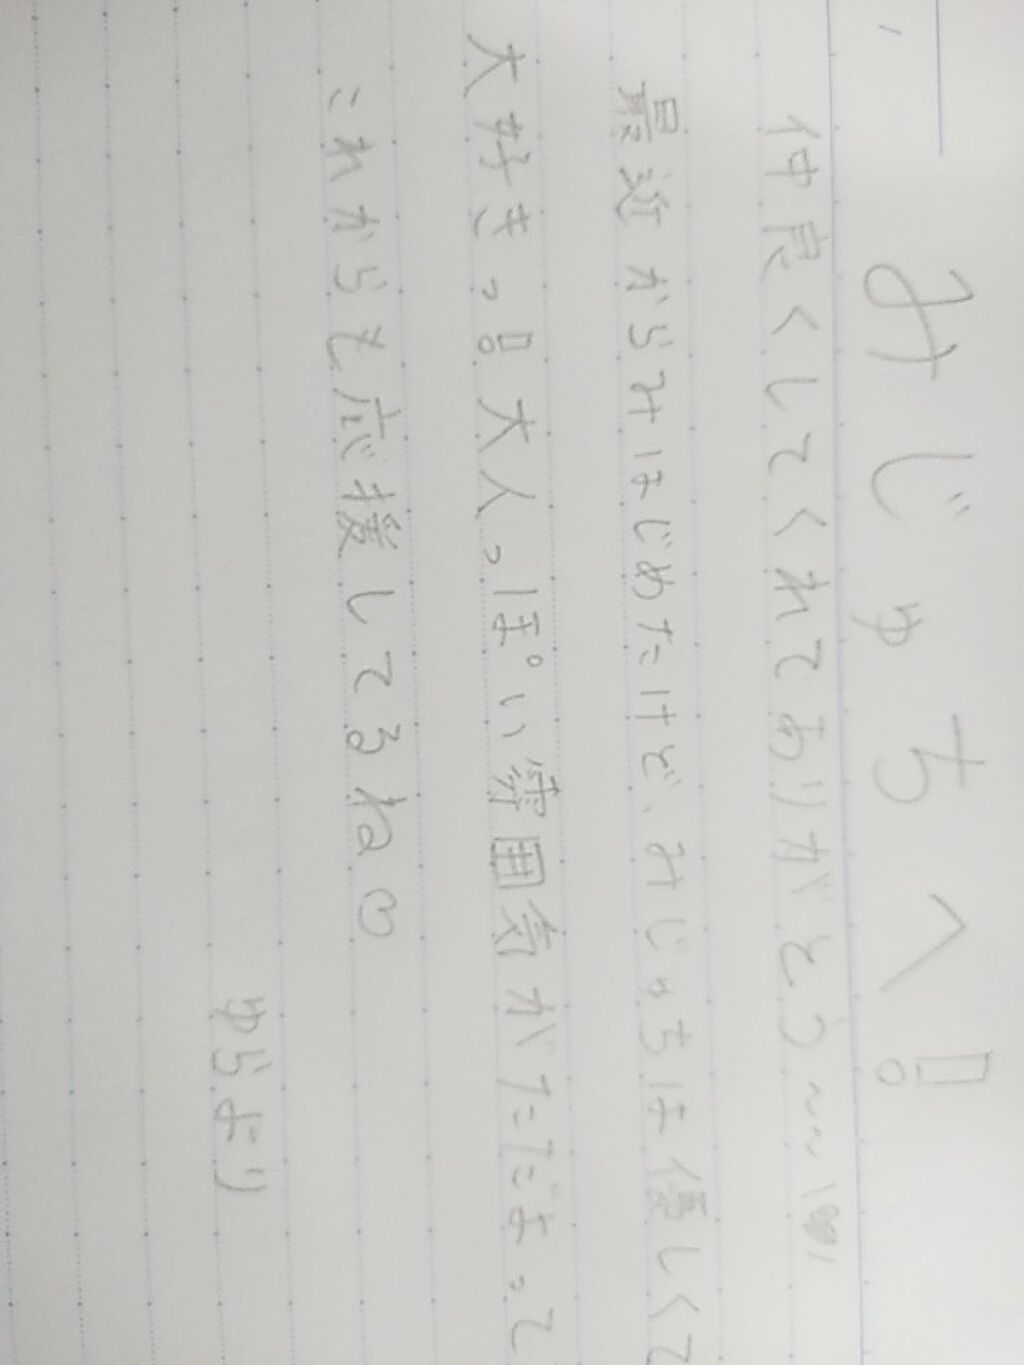 みじゅちへ!
仲良くしてくれてありがとう〜〜
最近からみはじめたけど、みじゅちは優しくて
大好きっ!大人っぽい雰囲気がただよってて
これからも応援してるね
ゆらより